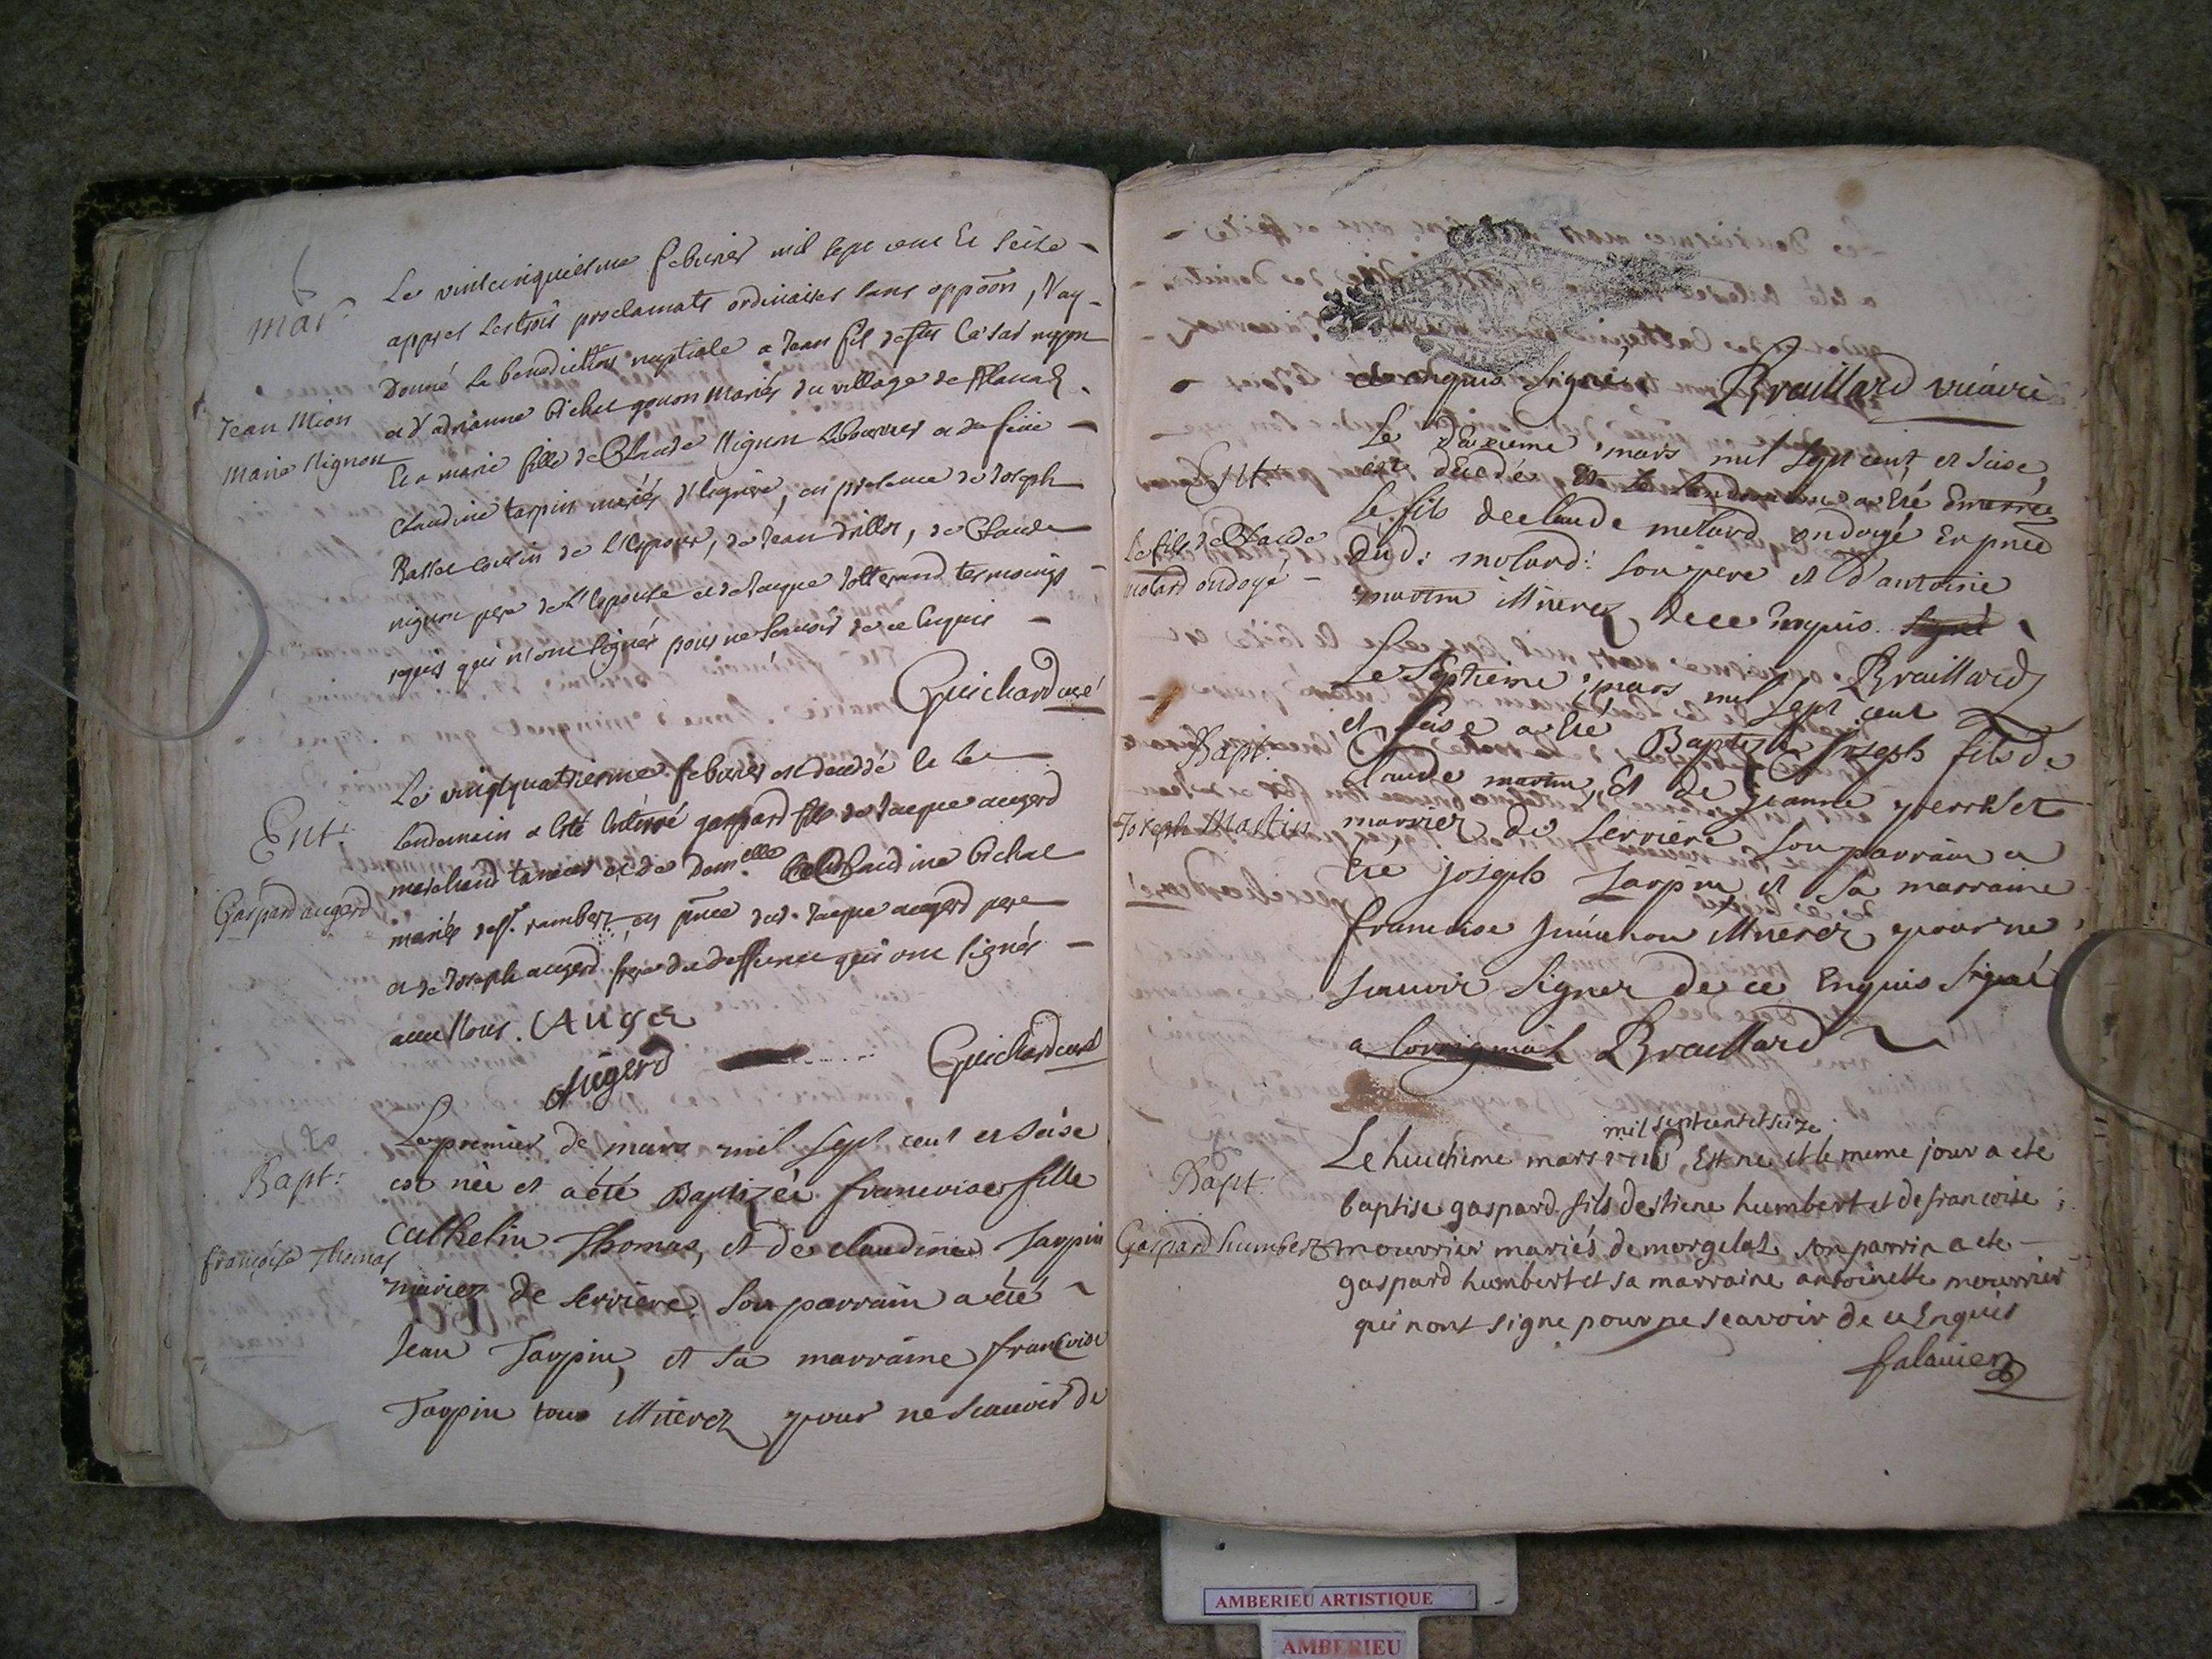 mar.
Jean Mion
Marie Mignon
Le vintcinquiesme febvrier mil sept cent et seize
appres les trois proclamats ordinaires sans oppoõn, j'ay
donné la benediction nuptiale a Jean fil de feu
et d'adrianne Bichet mariés du village de
Et a marie fille de Claude Mignon et de feüe
claudine tarpin mariés, en presence de Joseph
cousin de L'Espoux, de Jean drillon, de Claude
mignon pere de L'Epouse et de Jacque tesmoings
requis qui n'ont signés pour ne scavoir de ce enquis
Guichard curé
Ent.
Gaspard augerd
Le vingtquatriesme febvrier est decedé et le
lendemain a esté enterré gaspard fils de Jacque augerd
marchand taneur et de Damelle Claudine Bichat
mariés de st. rambert, en pñce dud. Jacque augerd pere
et de Joseph augerd frere du deffunct qui ont signés
avec Nous. Auger
Augerd
Guichard curé
Bapt:
françoise Thomas
Le premier de mars mil sept cent et seise
est née et a été Baptizée francoise fille
cathelin Thomas, et de claudine Tarpin
mariez de serriere son parrain a été
Jean Tarpin, et sa marraine francoise
Tarpin tous illiterez pour ne scauoir de
ce enquis signé, Braillard vicaire
Ent.
Le fils de Claude
molard ondoyé
Le deuxieme mars mil sept cent et seise,
est decedé Et le lendemain a eté enterré
le fils declaude molard ondoyé En pnce
dud: molard: son pere et d'antoine
martin illiterez de ce enquis signé
Braillard
Bapt.
Joseph Martin
Le Septieme mars mil sept cent
et seise a eté Baptizé Joseph fils de
Claude martin, Et de jeanne
mariez de serriere son parrain a
été joseph Tarpin et sa marraine
francoise illiterez pour ne
scauoir signer de ce Enquis signé
a lorriginal Braillard
Bapt.
Gaspard humbert
mil sept cent et seize
Le huictieme mars 1716 Est ne et le meme jour a ete
baptise gaspard fils destiene humbert et de francoise
mourrier mariés de morgelas son parrin a ete
gaspard humbert et sa marraine antoinette mourrier
qui nont signe pour ne scavoir de ce Enquis
falavier
AMBERIEU ARTISTIQUE
AMBERIEU